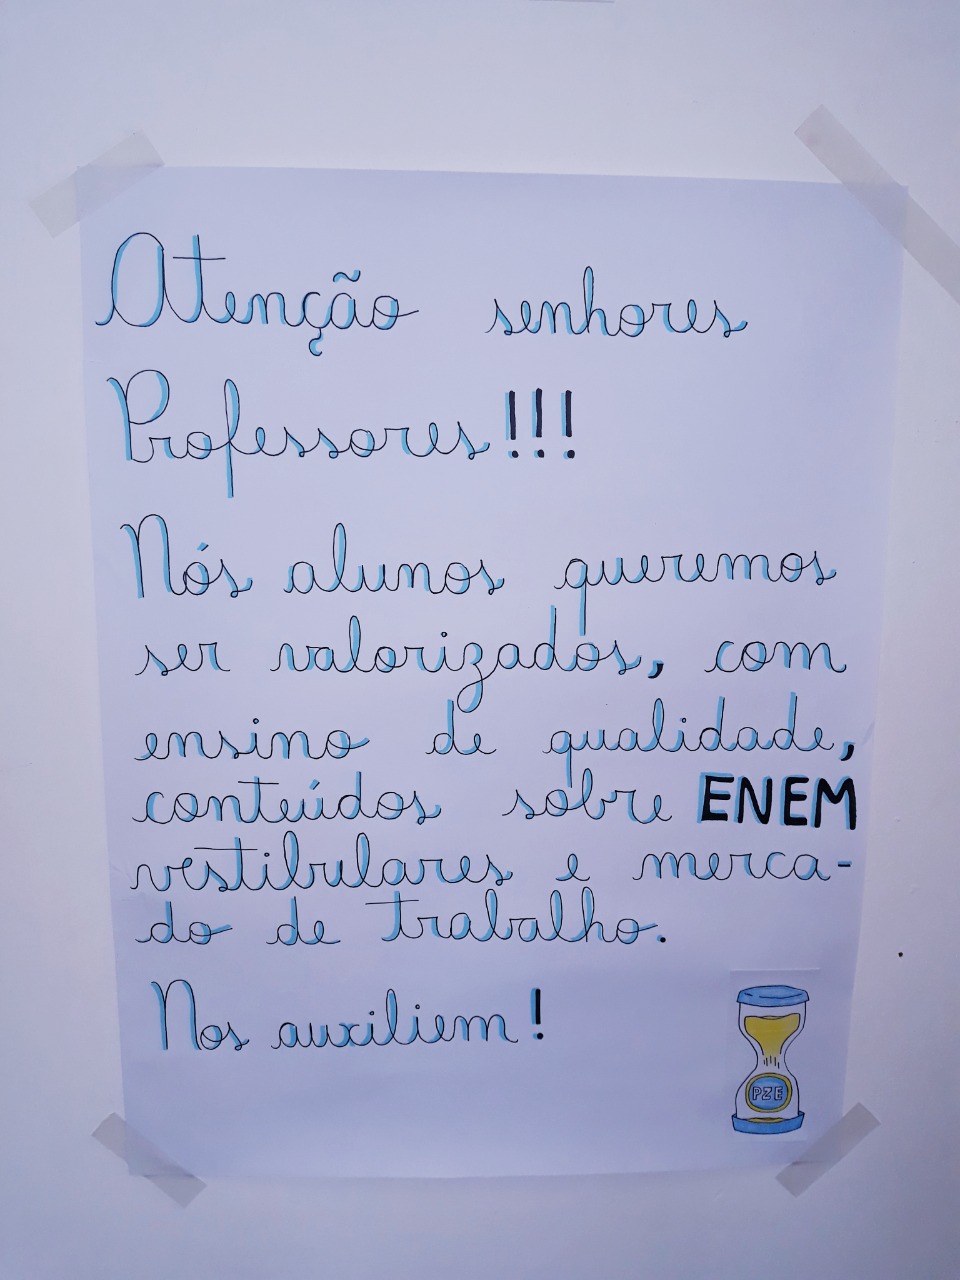 Atenção senhores
Professores!!!
Nós alunos queremos
ser valorizados, com
ensino de qualidade,
conteúdos sobre ENEM
vestibulares e merca-
do de trabalho.
Nos auxiliem!
PZE